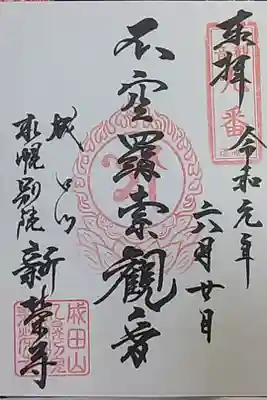 奉拝
令和元年
六月廿日
不空羂索觀音
成田山
札幌別院
新榮寺
成田山